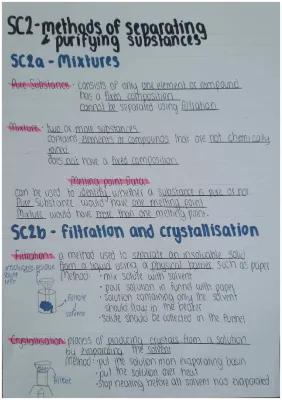 SC2 - methods of separating
& purifying substances
SC2a - Mixtures
Pure Substance - consists of only one element or compound
has a fixed composition
cannot be separated using filtration
Mixture - two or more substances
contains elements or compounds that are not chemically
joined
does not have a fixed composition
Melting point Data
can be used to identify whether a substance is pure or not
Pure Substance would have one melting point
Mixture would have more than one melting point.
SC2b - filtration and crystallisation
Filtration - a method used to separate an insoluble solid
from a liquid using a physical barrier such as paper
residue
Method: - mix solute with solvent
- pour solution in funnel with paper
- solution containing only the solvent
should flow in the beaker
- solute should be collected in the funnel
filtrate
solvent
Crystallisation - process of producing crystals from a solution
by evaporating the solvent
Method: - put the solution in an evaporating basin
- put the solution over heat
- stop heating before all solvent has evaporated